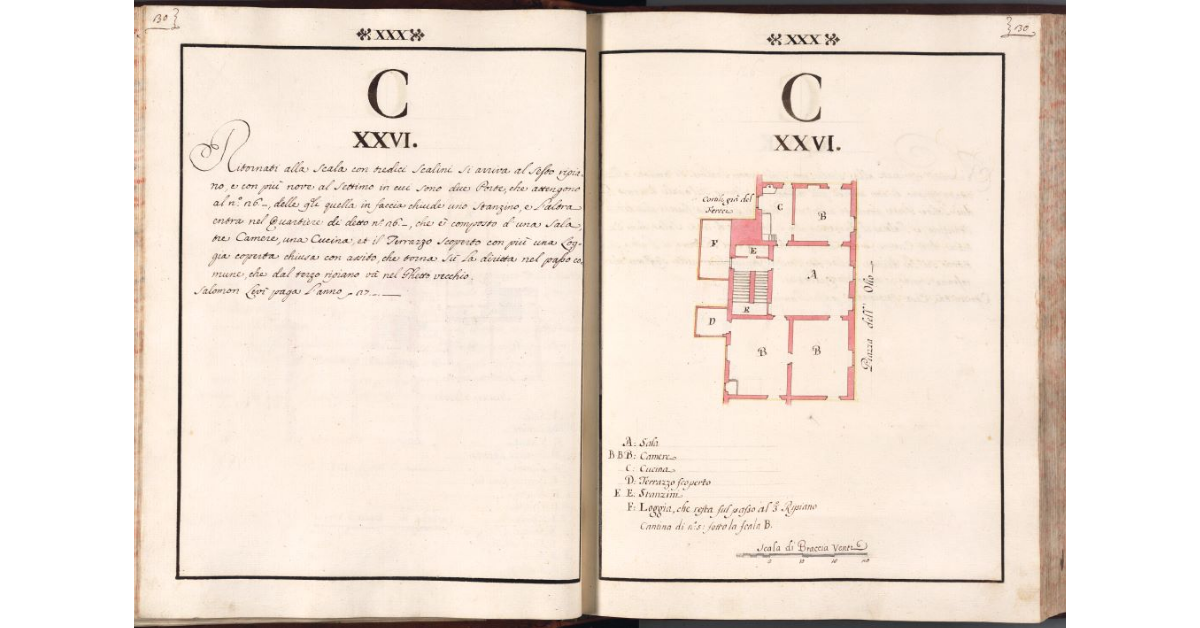 130
XXX
C
XXVI.
Ritornati alla scala con tredici scalini si arriva al sesto ripia-
no, e con più nove al settimo in cui sono due Porte, che attengono
al n.º 26_, delle q̃li quella in faccia chiude uno Stanzino, e l'altra
entra nel Quartiere di detto n.º 26_, che è composto d'una Sala
tre Camere, una Cucina, et il Terrazzo scoperto con più una Log-
gia coperta chiusa con assito, che torna sù la diritta nel passo co-
mune, che dal terzo ripiano và nel Ghetto vecchio.
Salomon Levi paga l'anno
130
XXX
C
XXVI.
Cortile giù del
C
B
F
E
A
E
D
B
B
Piazza dell' Olio
A: Sala
B B B: Camere
C: Cucina
D: Terrazzo scoperto
E E. Stanzini
F: Loggia, che resta sul passo al 3. Ripiano
Cantina di n.º 5: sotto la scala B.
Scala di Braccia Venti